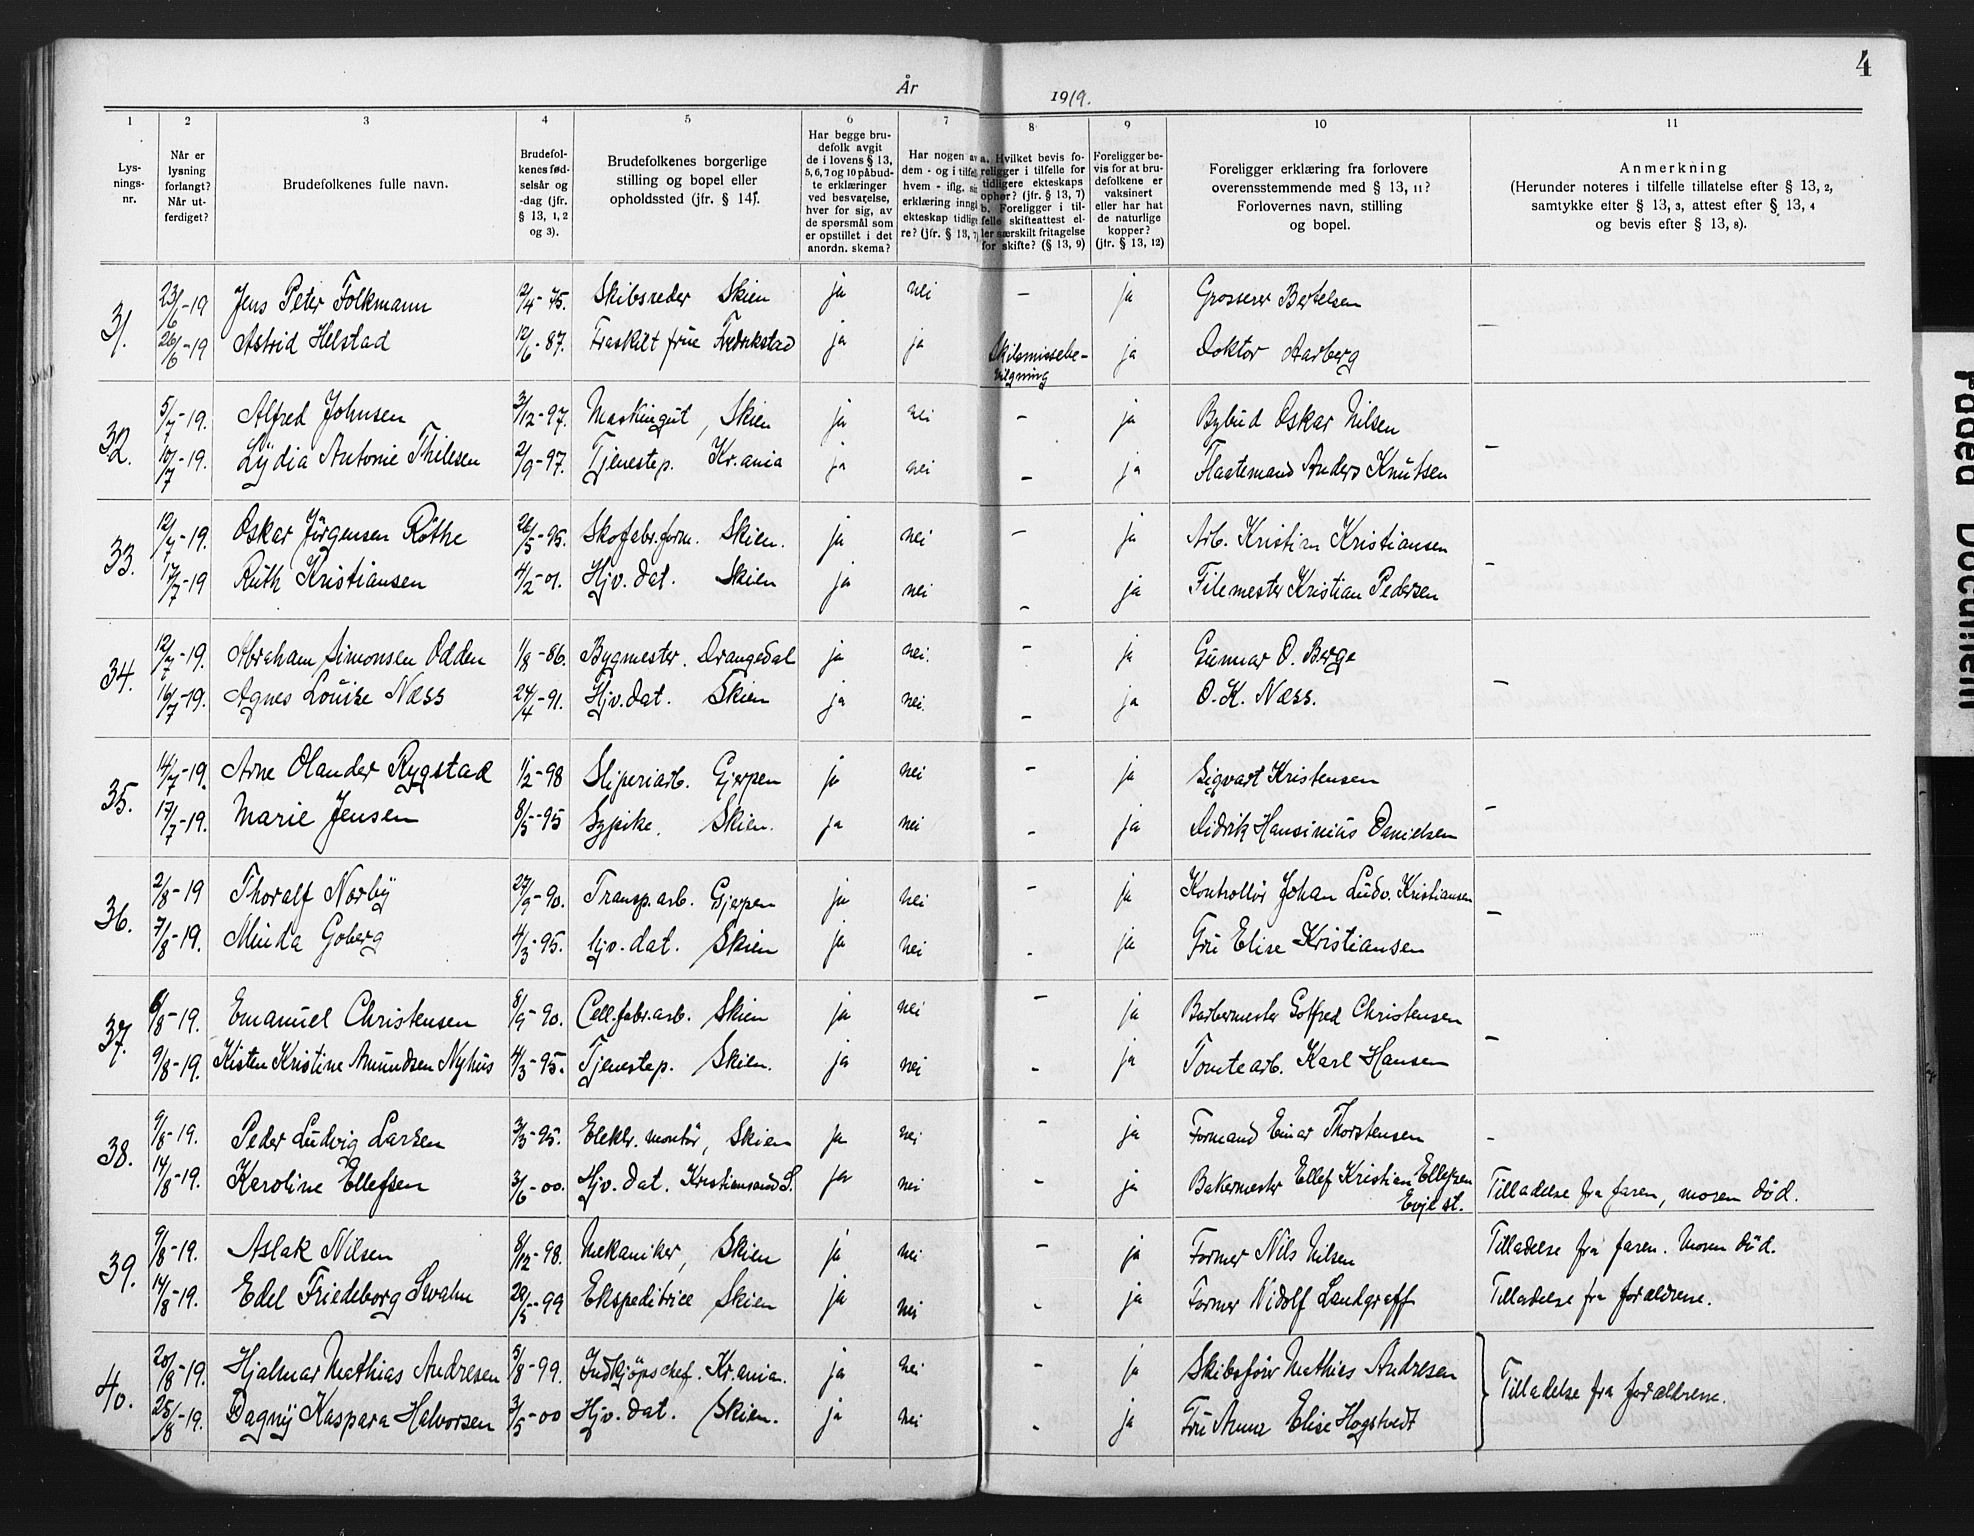 4
År 1919.
1 2 3 4 5 6 7 8 9 10 11
Lys-
nings-
nr.
Når er
lysning
forlangt?
Når ut-
ferdiget?
Brudefolkenes fulle navn.
Brudefol-
kenes fød-
selsår og
-dag (jfr.
§ 13, 1, 2
og 3).
Brudefolkenes borgerlige
stilling og bopel eller
opholdssted (jfr. § 14).
Har begge bru-
defolk avgit
de i lovens § 13,
5, 6, 7 og 10 påbud-
te erklæringer
ved besvarelse,
hver for sig, av
de spørsmål som
er opstillet i det
anordn. skema?
Har nogen av
dem - og i tilfel
hvem - iflg. sin
erklæring inngå
ekteskap tidlige
re? (jfr. § 13, 7)
a. Hvilket bevis fo-
religger i tilfelle for
tidligere ekteskaps
ophør? (jfr. § 13, 7)
b. Foreligger i til-
felle skifteattest el-
ler særskilt fritagelse
for skifte? (§ 13, 9)
Foreligger be-
vis for at bru-
defolkene er
vaksinert
eller har hat
de naturlige
kopper?
(jfr. § 13, 12)
Foreligger erklæring fra forlovere
overensstemmende med § 13, 11?
Forlovernes navn, stilling
og bopel.
Anmerkning
(Herunder noteres i tilfelle tillatelse efter § 13, 2,
samtykke efter § 13, 3, attest efter § 13, 4
og bevis efter § 13, 8).
31. 23/6-19 Jens Peter Folkmann 2/4-75. Skibsreder Skien ja nei - ja Grosserer Bertelsen
26/6-19 Astrid Helstad 12/6-87. Fraskilt frue Fredrikstad ja ja Skilsmissebe-vilgning ja Doktor Aarberg -
32. 5/7-19. Alfred Johnsen 3/12-97. Maskingut, Skien ja nei - ja Bybud Oskar Nilsen
10/7-19. Lydia Antonie Thilesen 2/9-97. Tjenestep. Kr.ania ja nei - ja Flaatemand Anders Knutsen -
33. 12/7-19. Oskar Jörgensen Röthe 26/5-95. Skofabr.form. Skien. ja nei - ja Arb. Kristian Kristiansen
17/7-19 Ruth Kristiansen 4/2-01. Hjv. dat. Skien ja nei - ja Filemester Kristian Pedersen -
34. 12/7-19. Abraham Simonsen Odden 1/8-86. Bygmester. Drangedal ja nei. - ja Gunnar O. Berge
16/7-19. Agnes Louise Næss 24/4-91. Hjv. dat. Skien ja nei. - ja O. K. Næss. -
35. 14/7-19. Arne Olander Rygstad 1/2-98 Sliperiarb. Gjerpen ja nei - ja Sigvart Kristensen
17/7-19. Marie Jensen 8/5-95 Sypike. Skien. ja nei - ja Didrik Hansinius Danielsen -
36. 2/8-19 Thoralf Norby 27/9-90. Transp.arb. Gjerpen ja nei - ja Kontrollör Johan Ludv. Kristiansen
7/8-19. Minda Goberg 4/3-95. hjv. dat. Skien ja nei - ja Fru Elise Kristiansen -
37. 6/8-19. Emanuel Christensen 8/9-90. Cell.fabr.arb. Skien ja nei - ja Barbermester Gotfred Christensen
9/8-19. Kisten Kristine Amundsen Nyhus 4/3-95. Tjenestep. Skien. ja nei - ja Tomtearb. Karl Hansen -
38. 9/8-19. Peder Ludvig Larsen 3/3-95. Elektr. montör, Skien ja nei - ja Formand Einar Thorstensen -
14/8-19. Karoline Ellefsen 3/6-00. Hjv. dat. Kristiansand S. ja nei - ja Bakermester Ellef Kristian Ellefsen Evje st. Tilladelse fra faren, moren död.
39. 9/8-19. Aslak Nilsen 8/12-98. Mekaniker, Skien ja nei - ja Former Nils Nilsen Tilladelse fra faren. Moren död.
14/8-19. Edel Friedeborg Svahn 29/5-99 Ekspeditrice Skien ja nei - ja Former Nidolf Landgraff Tilladelse fra forældrene.
40. 20/8-19. Hjalmar Mathias Andresen 5/8-99. Indkjöpschef. Kr.ania. ja nei - ja Skibsförer Mathias Andresen
25/8-19. Dagny Kaspara Halvorsen 3/5-00 Hjv. dat. Skien. ja nei - ja Fru Anna Elise Hogstvedt Tilladelse fra forældrene.
Faded Document